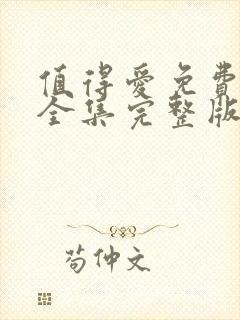 值得爱免费
全集完整版
苟仲文